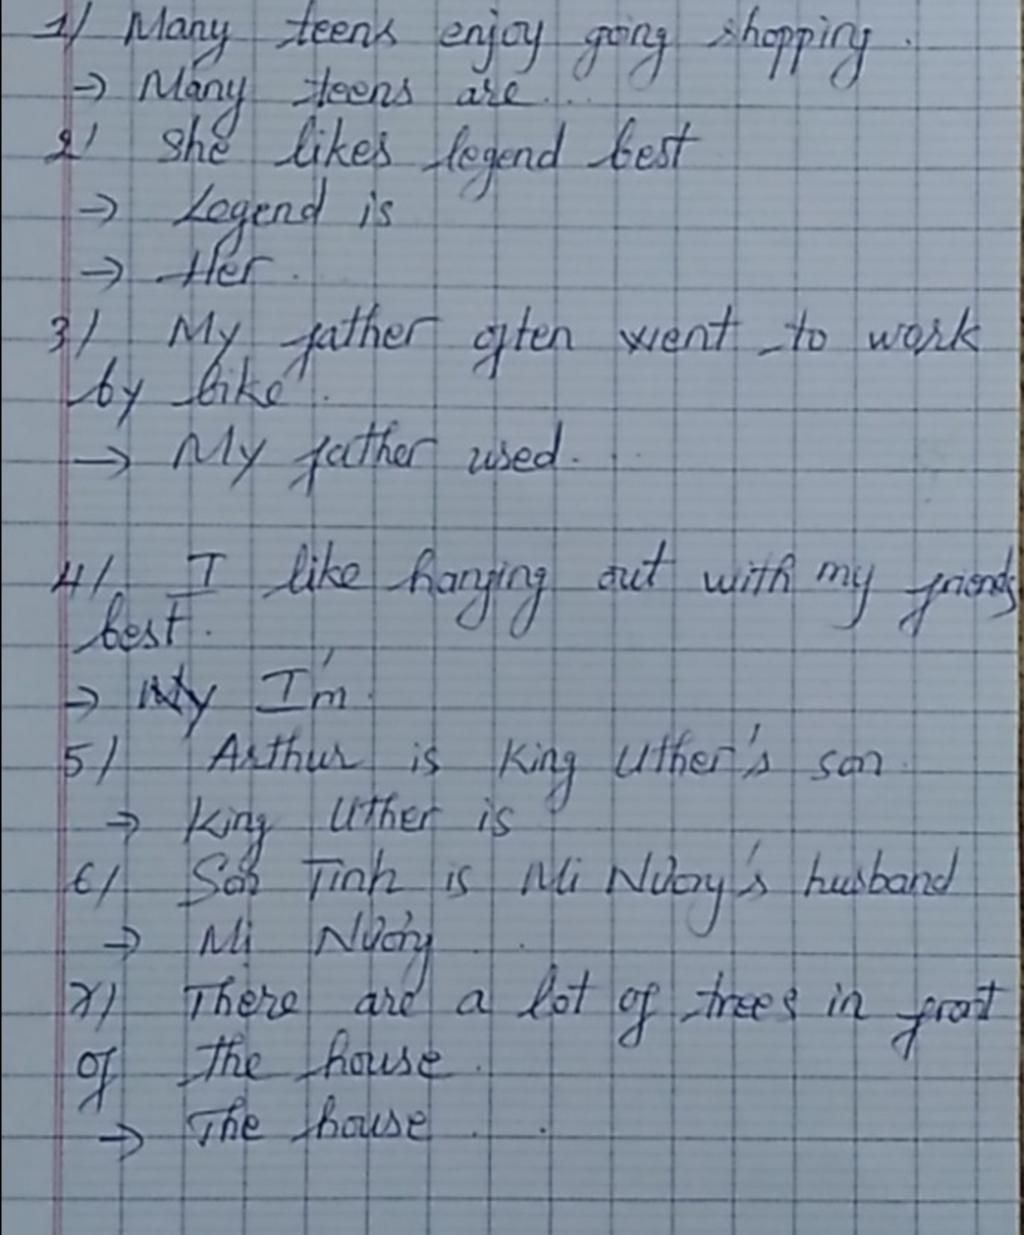 1/ Many teens enjoy going shopping.
→ Many teens are...
2/ She likes legend best
→ Legend is
→ Her.
3/ My father often went to work
by bike.
→ My father used...
4/ I like hanging out with my friends
best.
→ My I'm.
5/ Arthur is King Uther's son.
→ King Uther is
6/ Sơn Tinh is Mi Nương's husband
→ Mi Nương .
7/ There are a lot of trees in front
of the house.
→ The house . .